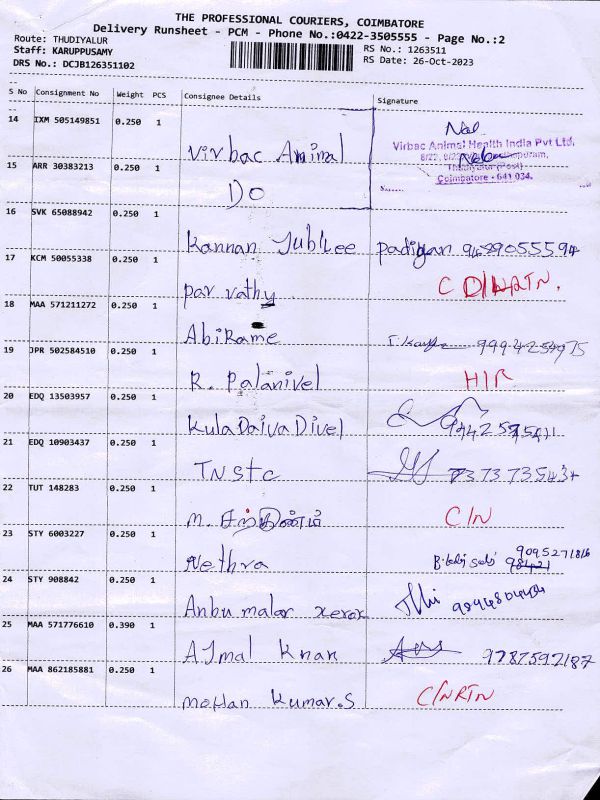 THE PROFESSIONAL COURIERS, COIMBATORE
Delivery Runsheet - PCM - Phone No.:0422-3505555 - Page No.:2
Route: THUDIYALUR
RS No.: 1263511
Staff: KARUPPUSAMY
RS Date: 26-Oct-2023
DRS No.: DCJB126351102
S No Consignment No Weight PCS Consignee Details Signature
14 IXM 505149851 0.250 1 Virbac Animal
Virbac Animal Health India Pvt Ltd,
Coimbatore - 641 034.
15 ARR 30383213 0.250 1 DO
16 SVK 65088942 0.250 1 Kannan Jubllee padigan 9489055594
17 KCM 50055338 0.250 1 par vathy
18 MAA 571211272 0.250 1 AbiRame
19 JPR 502584510 0.250 1 R. Palanivel HIR
20 EDQ 13503957 0.250 1 KulaDaivaDivel
21 EDQ 10903437 0.250 1 TNSTC
22 TUT 148283 0.250 1 m. C/N
23 STY 6003227 0.250 1 Nethra 9095271816
24 STY 908842 0.250 1 Anbu malar xerox
25 MAA 571776610 0.390 1 AJmal Khan 9787592187
26 MAA 862185881 0.250 1 moHan kumar.S C/NRTN